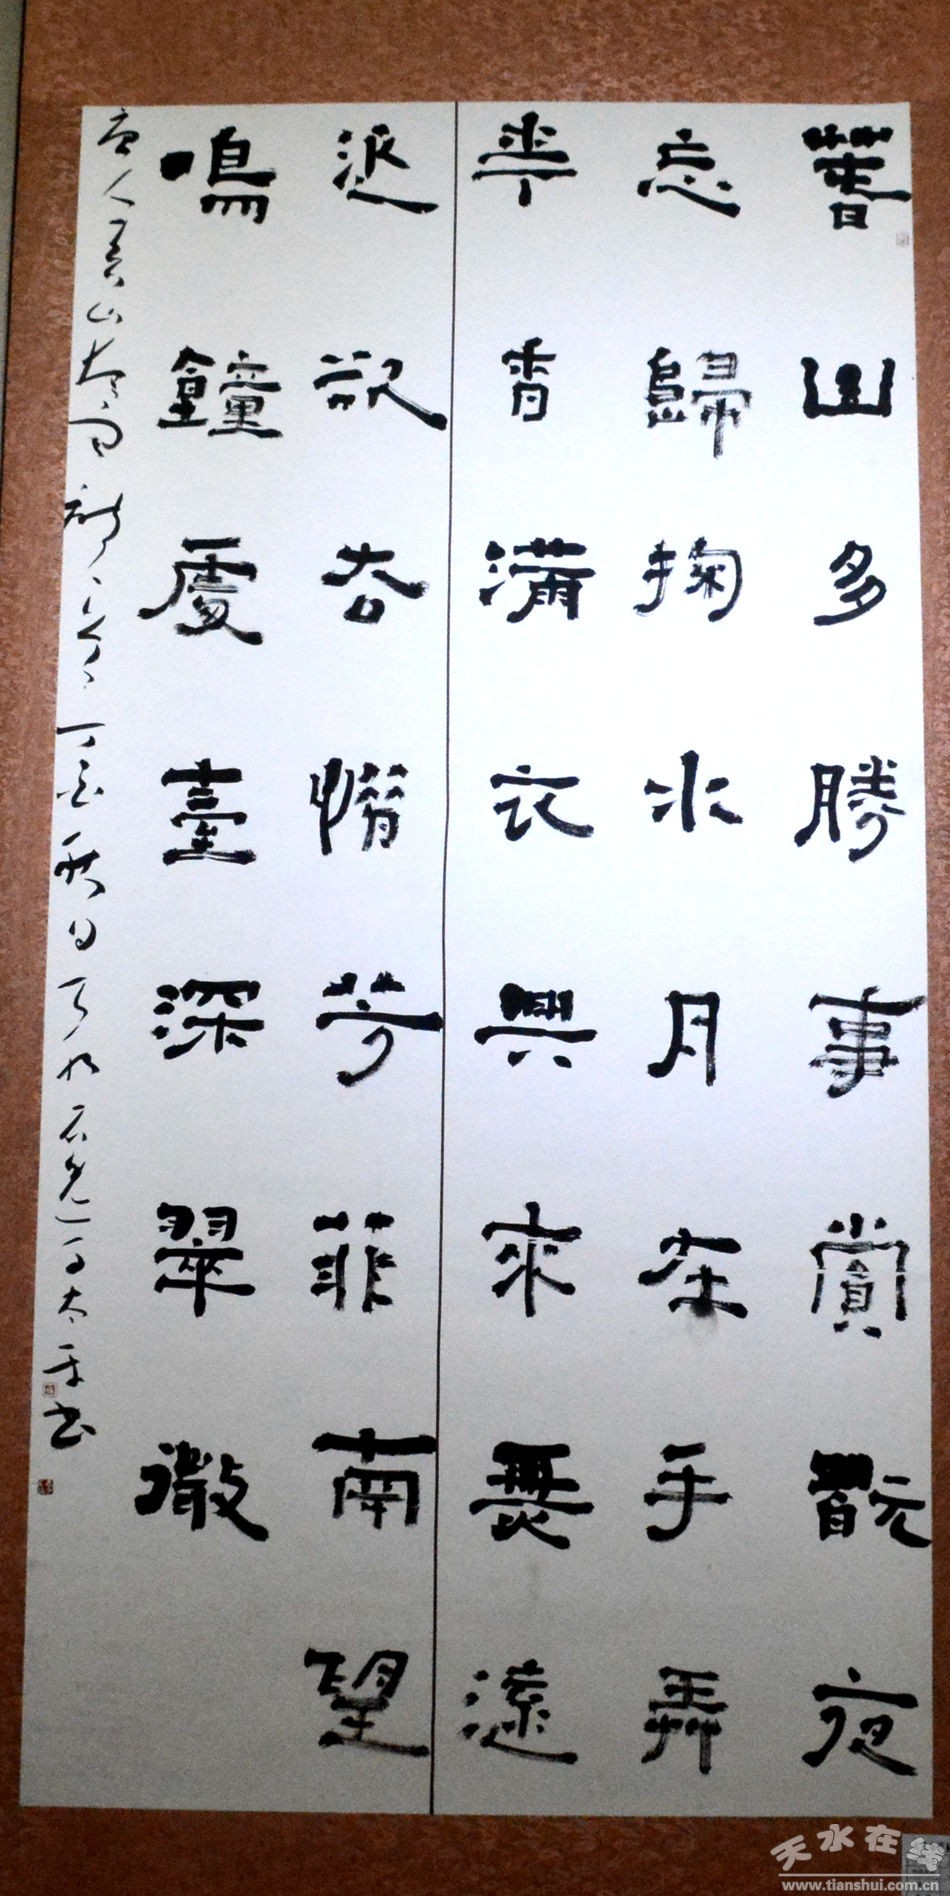 春山多勝事賞翫夜
忘歸掬水月在手弄
華香滿衣興來無遠
近欲去惜芳菲南望
鳴鐘處臺深翠微
唐人 丁酉秋 書
天水在线
www.tianshui.com.cn